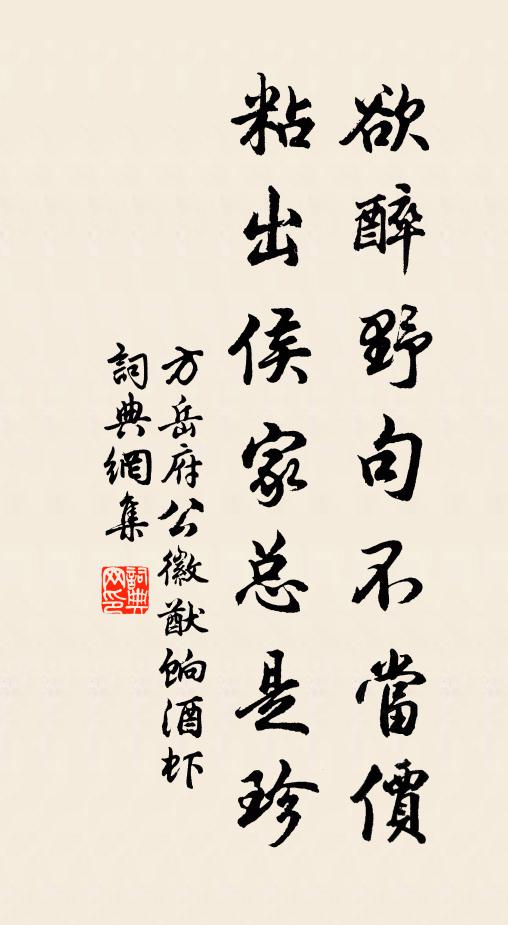 欲醉野句不當價
粘出侯家总是珍
方岳府公徽猷餉酒虾
詞典網集
詞典網印